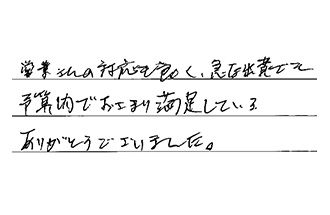 営業さんの対応も良く、急な出費でも
予算内でおさまり満足している
ありがとうございました。